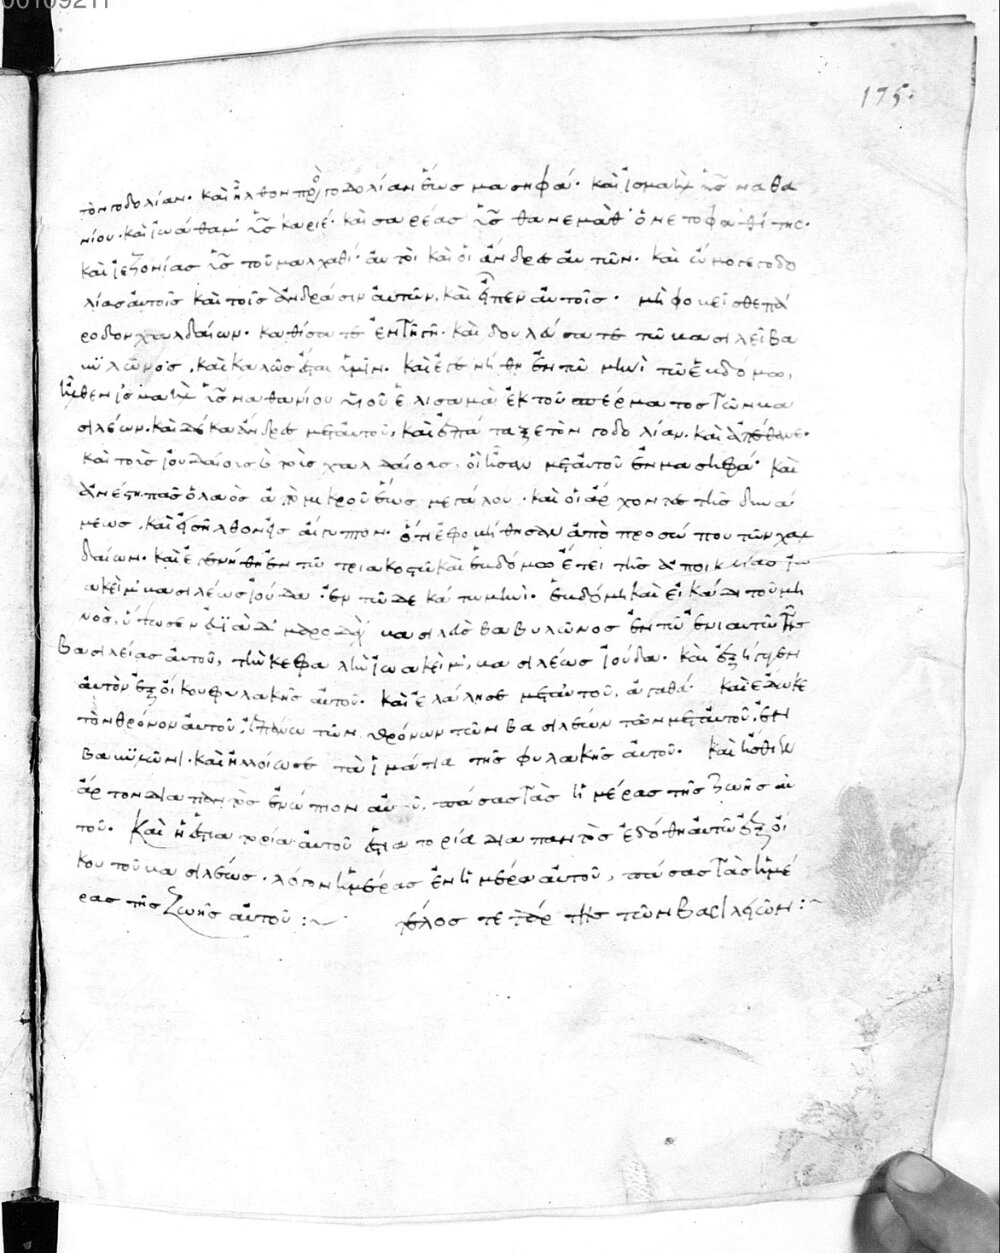 00109211
175.
τὸν γοδολίαν. καὶ ἦλθον πρὸς γοδολίαν ἕως μασηφά. καὶ ἰσμαὴλ υἱὸς ναθα
νίου. καὶ ἰωάθαμ υἱὸς καριέ. καὶ σαρέας υἱὸς θανεμὰθ ὁ νετοφαθίτης.
καὶ ἰεζονίας υἱὸς τοῦ μαλχαθί. αὐτοὶ καὶ οἱ ἄνδρες αὐτῶν. καὶ ὤμοσε γοδο
λίας αὐτοῖς καὶ τοῖς ἀνδράσιν αὐτῶν, καὶ εἶπεν αὐτοῖς. μὴ φοβεῖσθε πά
ροδον χαλδαίων. καθίσατε ἐν τῇ γῇ. καὶ δουλεύσατε τῶ βασιλεῖ βα
βυλῶνος, καὶ καλῶς ἔσται ὑμῖν. καὶ ἐγενήθη ἐν τῶ μηνὶ τῶ ἑβδόμω,
ἦλθεν ἰσμαὴλ υἱὸς ναθανίου υἱοῦ ἐλισαμὰ ἐκ τοῦ σπέρματος τῶν βα
σιλέων. καὶ δέκα ἄνδρες μετ αὐτοῦ, καὶ ἐπάταξε τὸν γοδολίαν. καὶ ἀπέθανε.
καὶ τοὺς ἰουδαίους καὶ τοὺς χαλδαίους, οἳ ἦσαν μετ αὐτοῦ ἐν μασηφά. καὶ
ἀνέστη πᾶς ὁ λαὸς ἀπὸ μικροῦ ἕως μεγάλου. καὶ οἱ ἄρχοντες τῆς δυνά
μεως, καὶ εἰσῆλθον εἰς αἴγυπτον. ὅτι ἐφοβήθησαν ἀπὸ προσώπου τῶν χαλ
δαίων. καὶ ἐγενήθη ἐν τῶ τριακοστῶ καὶ ἑβδόμω ἔτει τῆς ἀποικεσίας ἰω
ακεὶμ βασιλέως ἰούδα ἐν τῶ δεκάτω μηνὶ. ἑβδόμη καὶ εἰκάδι τοῦ μη
νὸς, ὕψωσεν βασιλεὺς βαβυλῶνος ἐν τῶ ἐνιαυτῶ τῆς
βασιλείας αὐτοῦ, τὴν κεφαλὴν ἰωακεὶμ, βασιλέως ἰούδα. καὶ ἐξήγαγεν
αὐτὸν ἐξ οἴκου φυλακῆς αὐτοῦ. καὶ ἐλάλησε μετ αὐτοῦ, ἀγαθά. καὶ ἔδωκε
τὸν θρόνον αὐτοῦ, ἐπάνω τῶν θρόνων τῶν βασιλέων τῶν μετ αὐτοῦ, ἐν
βαβυλῶνι. καὶ ἠλλοίωσε τὰ ἱμάτια τῆς φυλακῆς αὐτοῦ. καὶ ἤσθιεν
ἄρτον διαπαντὸς ἐνώπιον αὐτοῦ, πάσας τὰς ἡμέρας τῆς ζωῆς αὐ
τοῦ. Καὶ ἡ ἑστιατορία αὐτοῦ ἑστιατορία διαπαντὸς ἐδόθη αὐτῶ ἐξ οἴ
κου τοῦ βασιλέως. λόγον ἡμέρας ἐν ἡμέρα αὐτοῦ, πάσας τὰς ἡμέ
ρας τῆς ζωῆς αὐτοῦ :~ τέλος τετάρτης τῶν βασιλειῶν :~